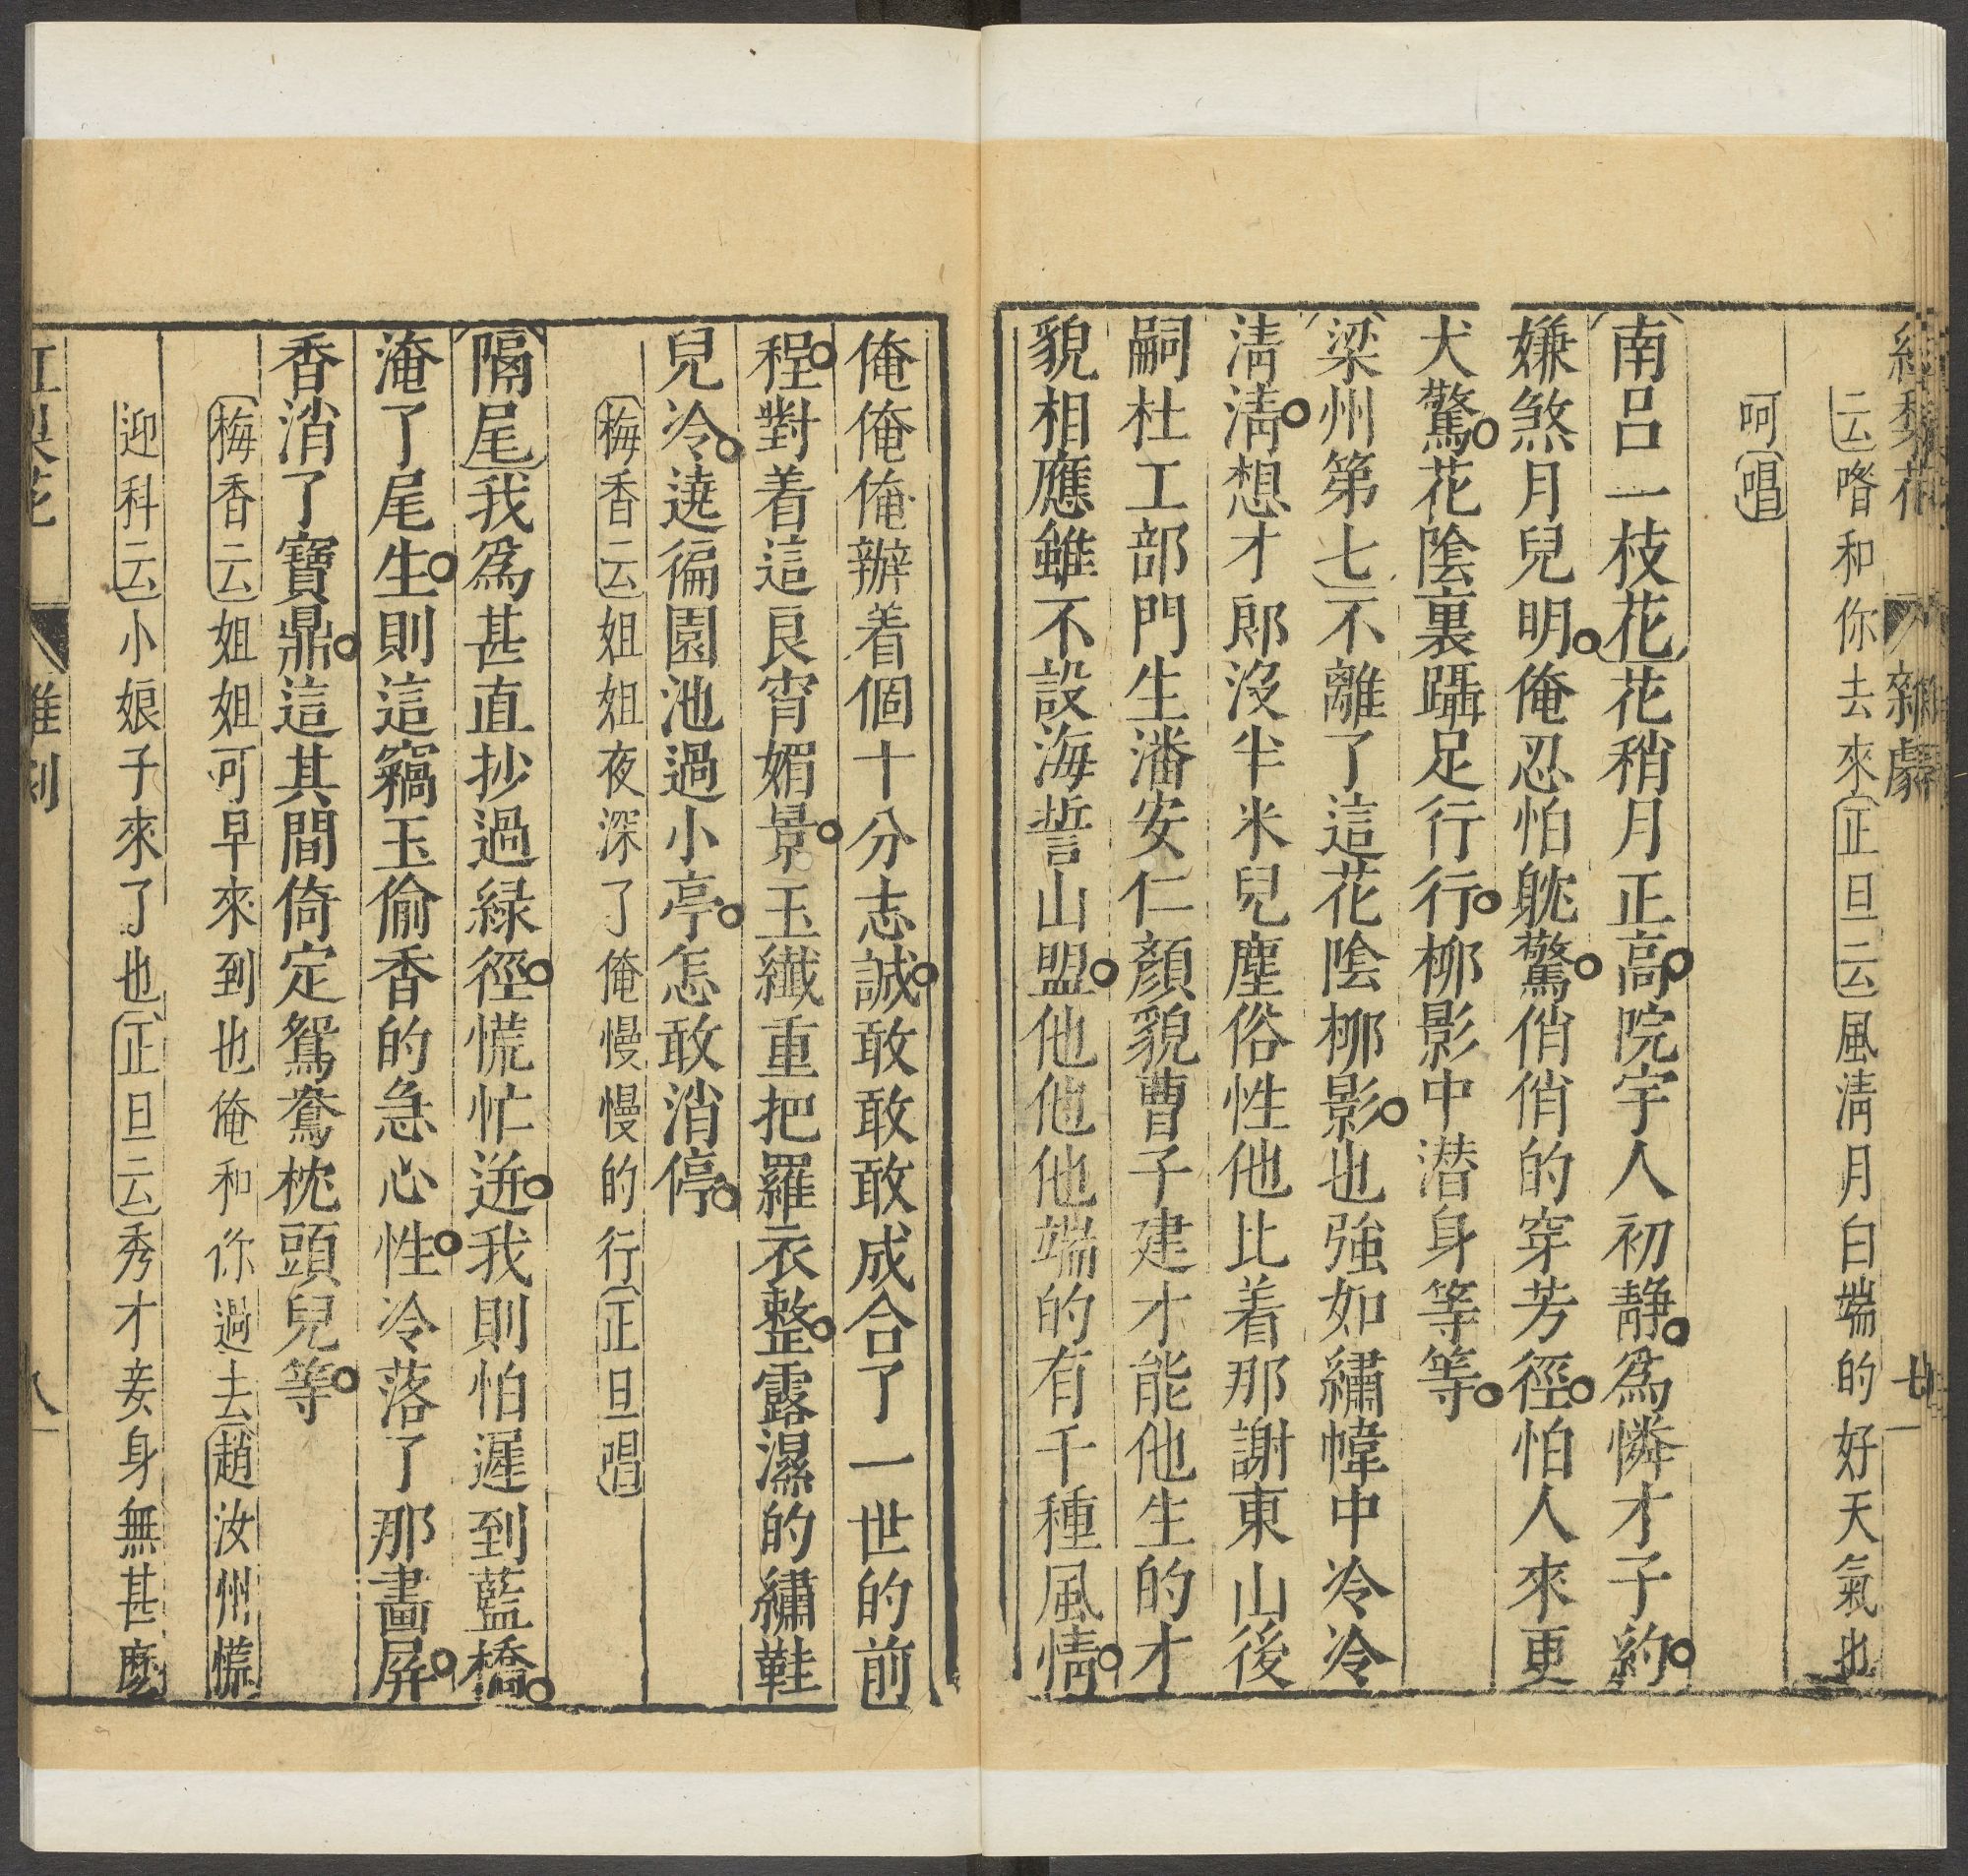 云喒和你去來正旦云風淸月白端的好天氣也
呵唱
南呂一枝花花稍月正高院宇人初靜爲憐才子約
嫌煞月兒明俺忍怕躭驚俏俏的穿芳徑怕人來更
犬驚花陰裏躡足行行柳影中潜身等等
梁州第七不離了這花陰柳影也強如繡幃中冷冷
淸淸想才郎沒半米兒塵俗性他比着那謝東山後
嗣杜工部門生潘安仁顏貌曹子建才能他生的才
貌相應雖不設海誓山盟他他他端的有千種風情
俺俺俺辦着個十分志誠敢敢敢成合了一世的前
程對着這良宵媚景玉纖重把羅衣整露濕的繡鞋
兒冷遶徧園池過小亭怎敢消停
梅香云姐姐夜深了俺慢慢的行正旦唱
隔尾我爲甚直抄過緑徑慌忙迸我則怕遲到藍橋
淹了尾生則這竊玉偷香的急心性冷落了那畵屏
香消了寶鼎這其間倚定鴛鴦枕頭兒等
梅香云姐姐可早來到也俺和你過去趙汝州慌
迎科云小娘子來了也正旦云秀才妾身無甚麽
紅梨花 雜劇 八